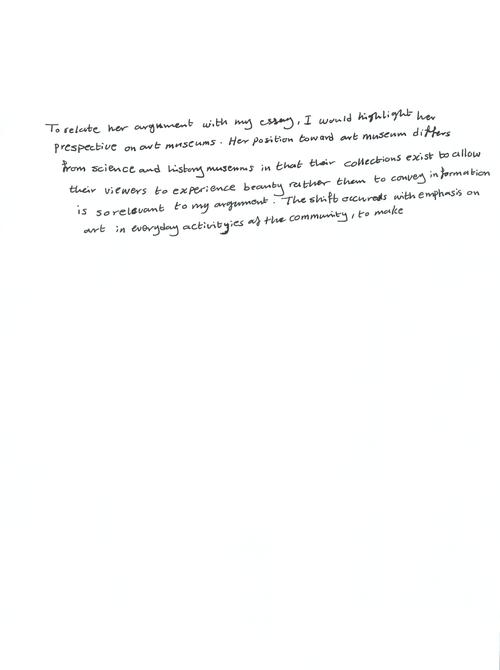 To relate her argument with my essay, I would highlight her
prespective on art museums. Her position toward art museum differs
from science and history museums in that their collections exist to allow
their viewers to experience beauty rather them to convey information
is so relevant to my argument. The shift occureds with emphasis on
art in everyday activityies of the community, to make